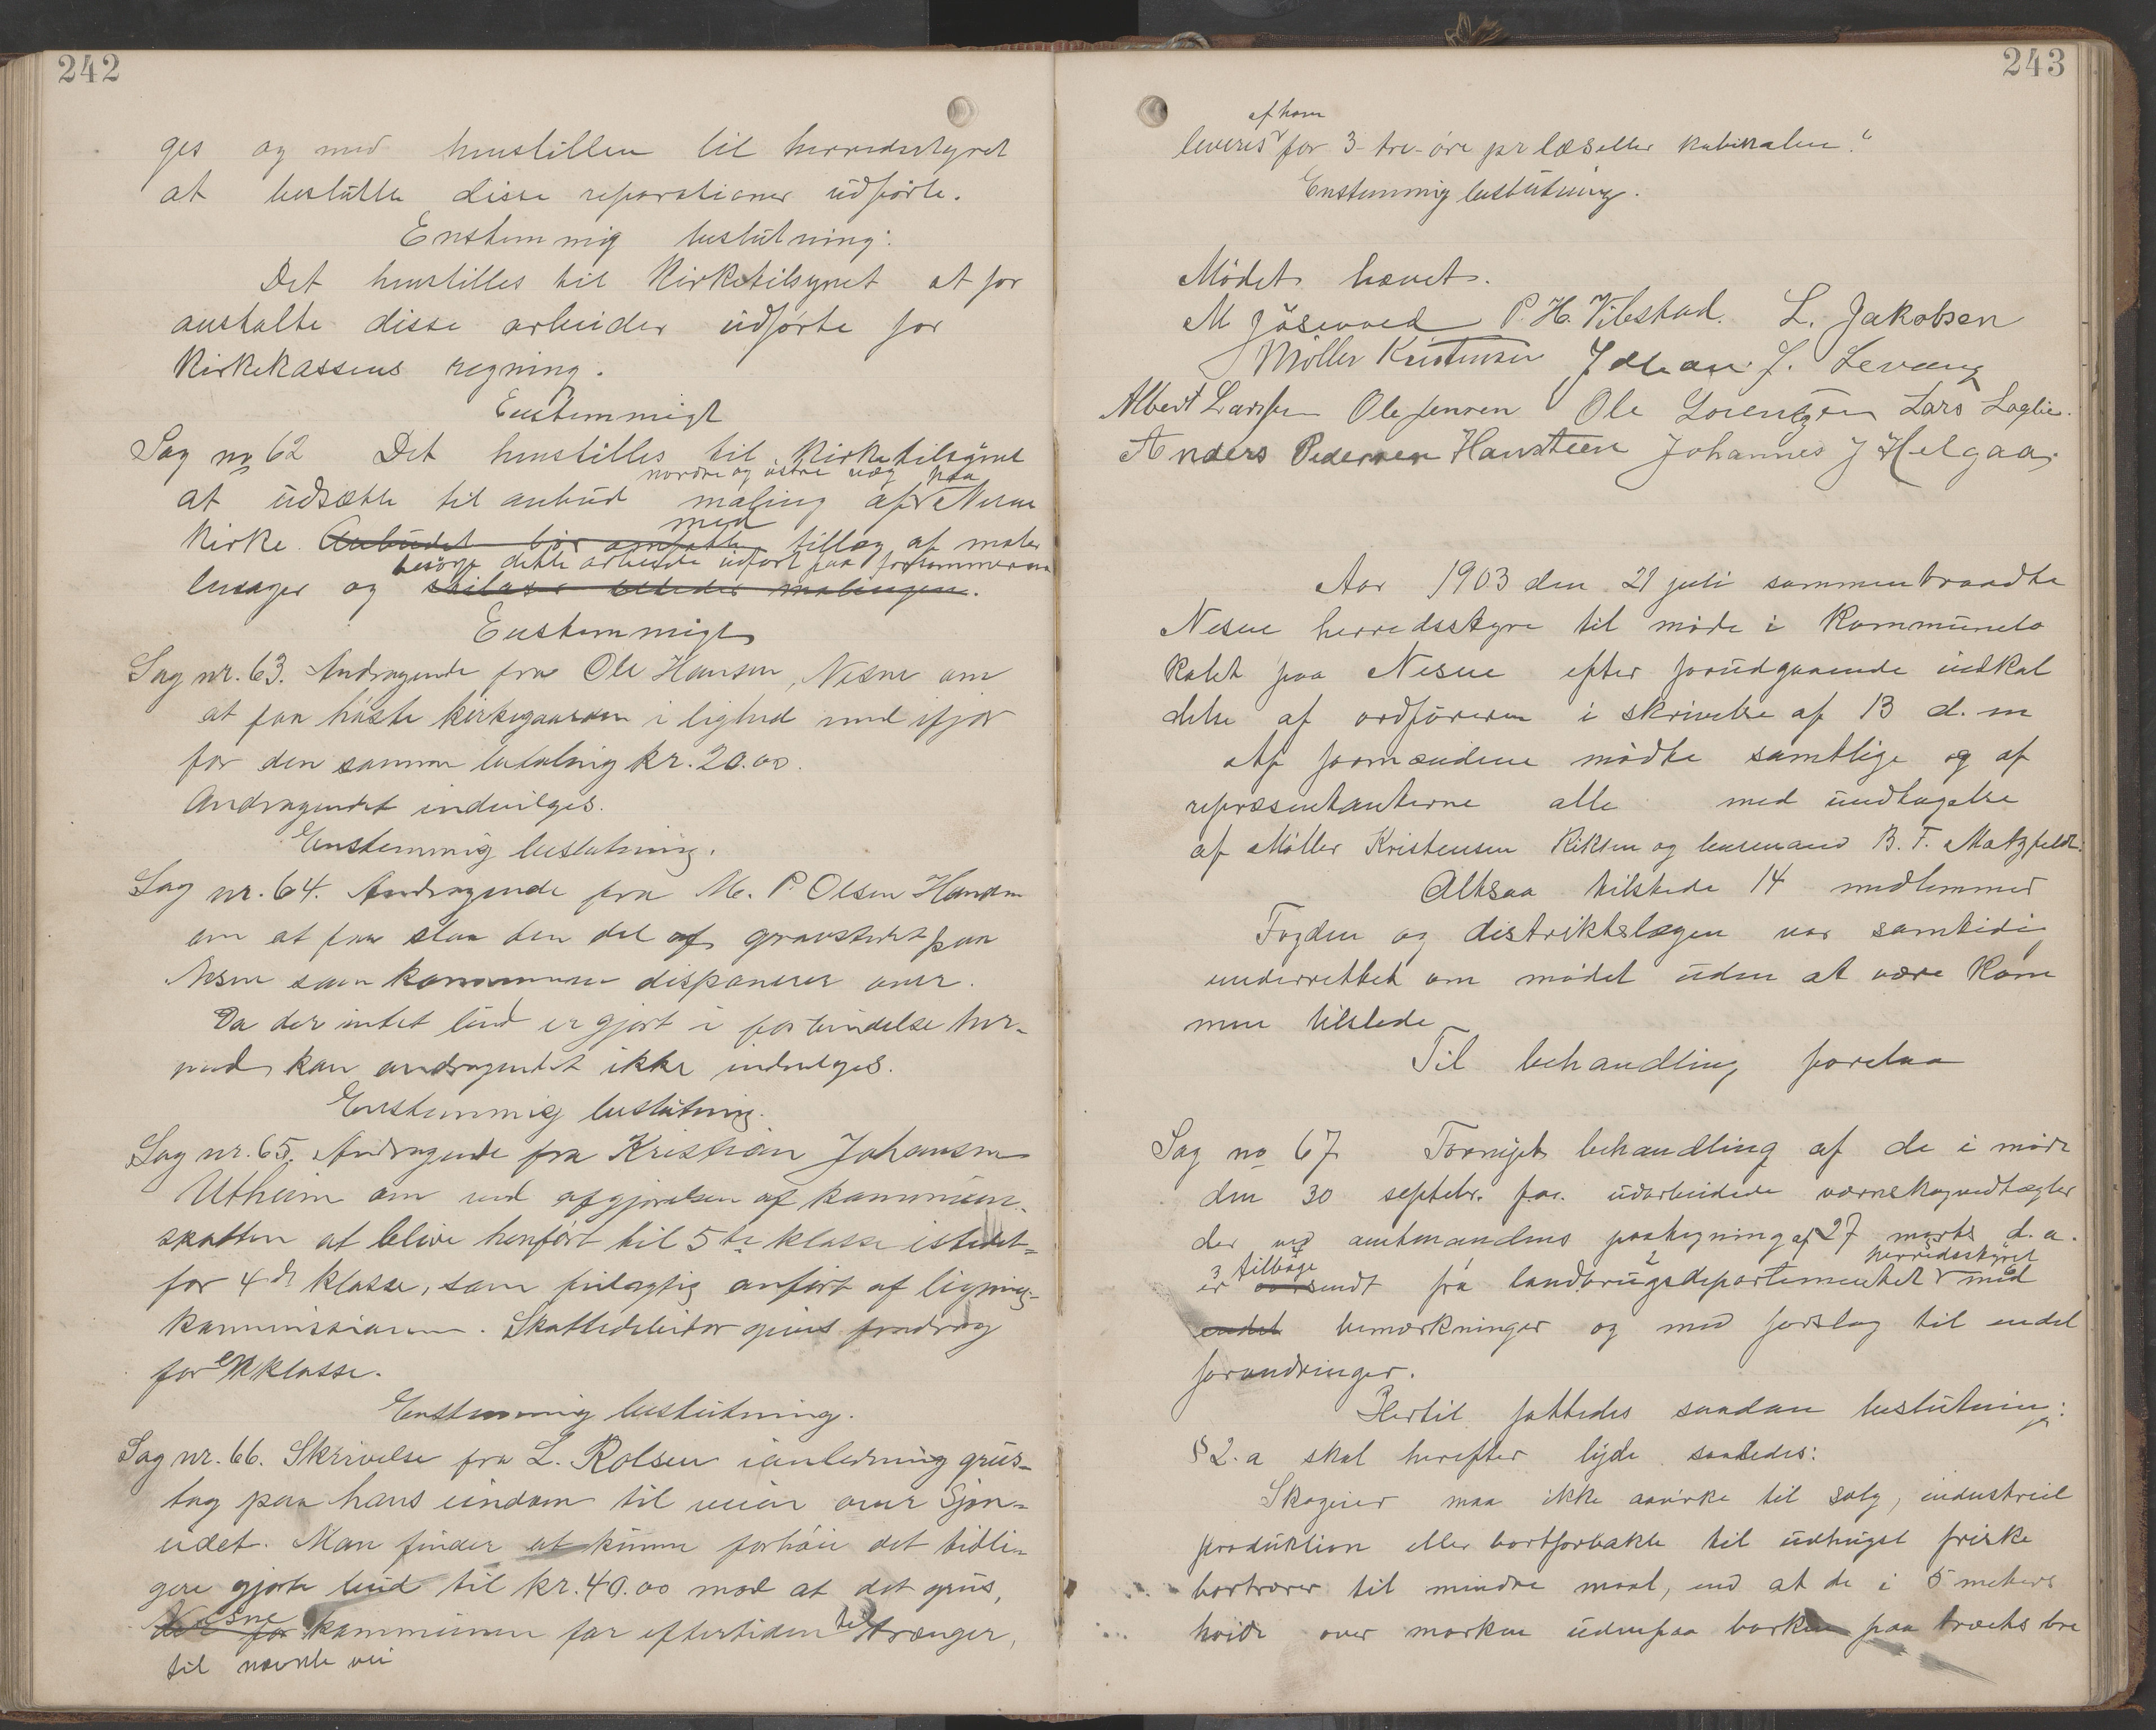 242
ges og med henstillen til herredstyret
at beslutte disse reparationer udførte.
Enstemmig beslutning:
Det henstilles til Kirketilsynet at for
anstalte disse arbeider udførte for
Kirkekassens regning.
Enstemmigt
Sag no 62 Det henstilles til Kirketilsynet
nordre og østre væg paa
at udsætte til anbud maling af Nesne
med
Kirke. Anbudet bør omfatte tillæg af mate
besørge dette arbeide udført paa forsommeren
lersager og malingen.
Enstemmigt
Sag nr. 63. Andragende fra Ole Hansen, Nesne om
at faa høste kirkegaarden i lighed med ifjor
for den samme betaling kr. 20.00.
Andragendet indvilges.
Enstemmig beslutning.
Sag nr. 64. Andragende fra M. P. Olsen
om at faa slaa den del af gravstedet paa
Nesne som kommunen disponerer over.
Da der intet bud er gjort i forbindelse her-
med kan andragendet ikke indvilges.
Enstemmig beslutning.
Sag nr. 65. Andragende fra Kristian Johansen
Utheim om ved afgjørelsen af kommune-
skatten at blive henført til 5te klasse istedet-
for 4de klasse, som feilagtig anført af lignings-
kommissionen. Skattedebitor gives fradrag
for en klasse.
Enstemmig beslutning.
Sag nr. 66. Skrivelse fra L. Rolsen ianledning grus-
tag paa hans eiendom til veien over Sjon-
eidet. Man finder at kunne forhøie det tidli-
gere gjorte bud til kr. 40.00 mod at det grus,
Nesne til
der for kommunen for eftertiden trænger,
til nævnte vei
243
af ham
leveres for 3 tre øre pr læs eller kubikalen."
Enstemmig beslutning.
Mødet hævet.
M Jøsevoed P. H. Vibstad. L. Jakobsen
Møller Kristensen Johan J. Levang
Albert Larssen Ole Jensen Ole Lorentzen Lars Laglie.
Anders Pedersen Hansteen Johannes J Helgaa.
Aar 1903 den 21 juli sammentraadte
Nesne herredsstyre til møde i Kommunelo
kalet paa Nesne efter forudgaaende indkal
delse af ordføreren i skrivelse af 13 d. m
Af formændene mødte samtlige og af
repræsentanterne alle med undtagelse
af Møller Kristensen Riksen og lensmand B. F. Motzfeldt.
Altsaa tilstede 14 medlemmer
Fogden og distriktslægen var samtidig
underrettet om mødet uden at være kom
men tilstede
Til behandling forelaa
Sag no 67 Fornyet behandling af de i møde
den 30 septebr. f.a. udarbeidede værnskogvedtægter
der ved amtmandens paategning af 27 marts d. a.
3 tilbage 2 herredsstyret
er oversendt fra landbrugsdepartementet med
endel bemærkninger og med forslag til endel
forandringer.
Hertil fattedes saadan beslutning:
§ 2. a skal herefter lyde saaledes:
Skogeier maa ikke avirke til salg, industriel
produktion eller bortforpakte til udhugst friske
bartrær til mindre maal, end at de i 5 meters
høide over marken udenpaa barken paa træets bre